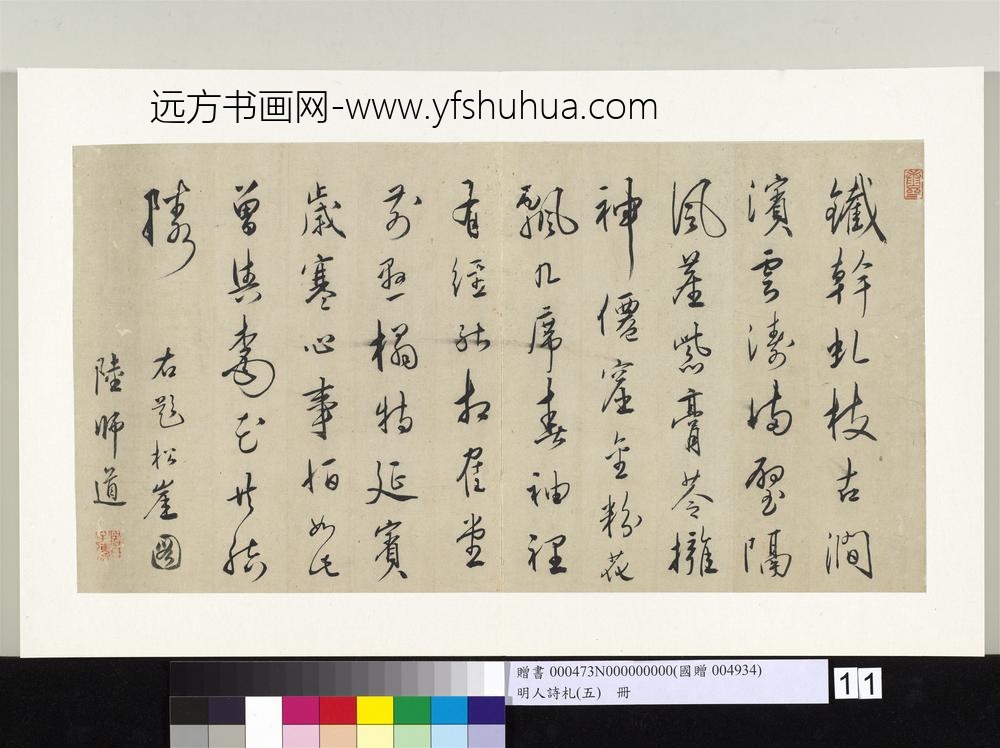 远方书画网-www.yfshuhua.com
鐵幹虬枝古澗
濱雲濤满壁隔
風塵紫膏苓擁
神僊窟金粉花
飄几席春袖裡
有經能相隺堂
前懸榻特延賓
歲寒心事如此
曾與花共結
隣
右題松崖圖
陸師道
贈書 000473N000000000(國贈 004934)
明人詩札(五) 冊
11